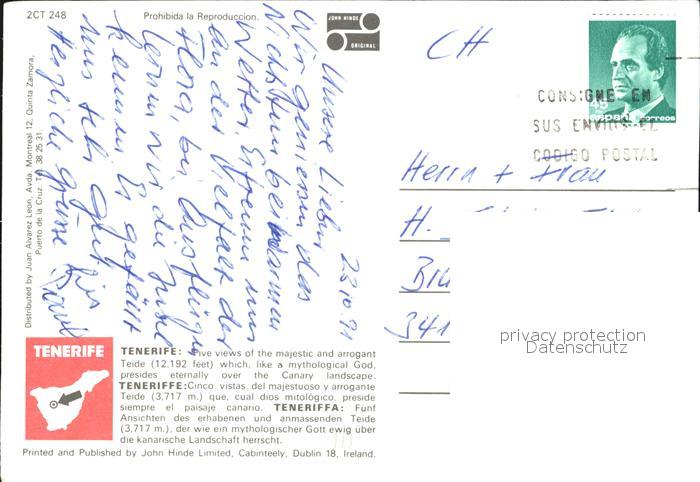 2CT 248
Prohibida la Reproduccion.
JOHN HINDE
ORIGINAL
CH
CONSIGNE EN
SUS ENVIOS EL
CODIGO POSTAL
españa correos
Herrn + Frau
H.
341
privacy protection
Datenschutz
23.10.91
Unsere Lieben
Wir geniessen das
Nichtstun bei warmem
Wetter, erfreuen uns
an der Vielfalt der
Flora, bei Ausflügen
lernen wir die Insel
kennen. Es gefällt
uns sehr gut.
Herzliche Grüsse
Distributed by Juan Alvarez Leon, Avda. Montreal 12, Quinta Zamora,
Puerto de la Cruz. Tel. 38 25 31.
TENERIFE
TENERIFE: Five views of the majestic and arrogant
Teide (12,192 feet) which, like a mythological God,
presides eternally over the Canary landscape.
TENERIFFE: Cinco vistas del majestuoso y arrogante
Teide (3,717 m.) que, cual dios mitológico, preside
siempre el paisaje canario. TENERIFFA: Fünf
Ansichten des erhabenen und anmassenden Teide
(3,717 m.), der wie ein mythologischer Gott ewig über
die kanarische Landschaft herrscht.
Printed and Published by John Hinde Limited, Cabinteely, Dublin 18, Ireland.